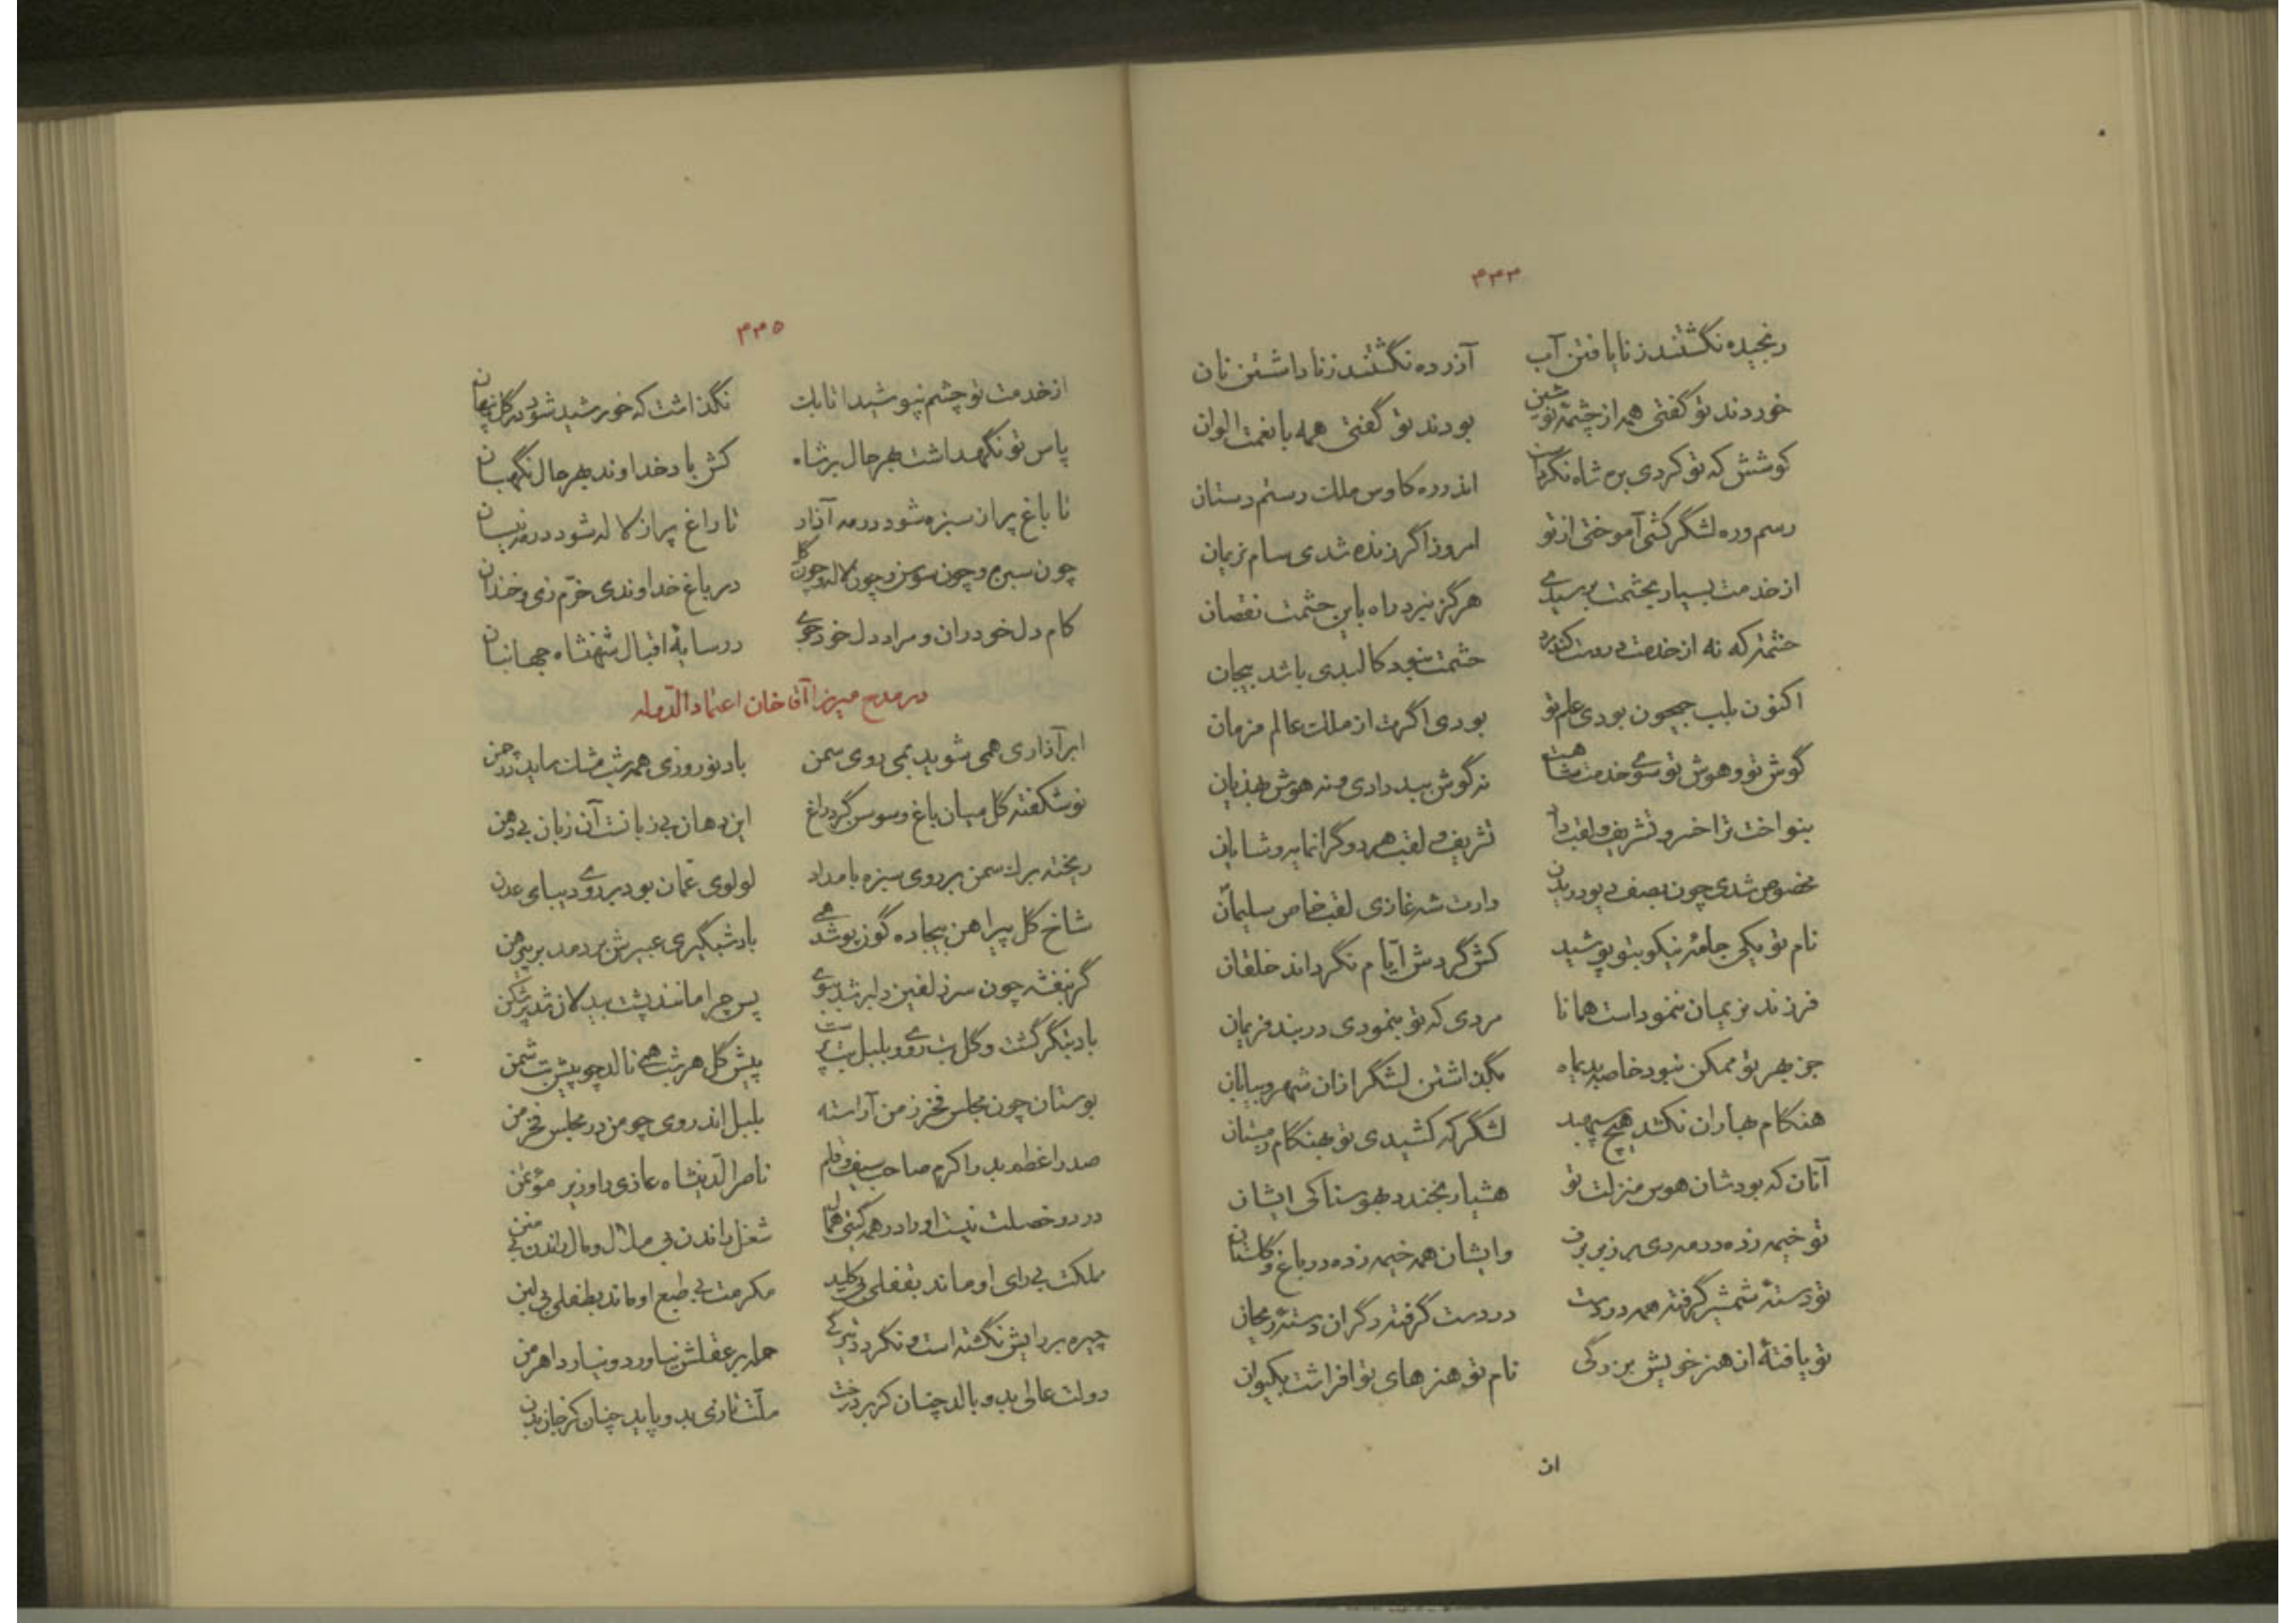 ۴۳۴
رنجیده نگشتند ز نایافتن آب آزرده نگشتند ز ناداشتن نان
خوردند تو گفتی همه از چشمه نوشین بودند تو گفتی همه با نعمت الوان
کوشش که تو کردی بره شاه نکردست اندر ره کاوس ملک رستم دستان
رسم و ره لشگر کشی آموختی از تو امروز اگر زنده شدی سام نریمان
از خدمت بسیار بحشمت برسیدی هرگز نبرد راه باین حشمت نقصان
حشمت که نه از خدمت حشمت نبود کالبدی باشد بیجان
اکنون بلب جیحون بودی علم تو بودی اگرت از ملک عالم فرمان
گوش تو و هوش تو سوی خدمت شاهست نه گوش ببد داری و نه هوش بهذیان
بنواخت ترا خسرو تشریف و لقب داد تشریف و لقب هر دو گرانمایه و شایان
مخصوص شدی چون بصف بدین وارث شه غازی لقب خاص سلیمان
نام تو یکی جامه نیکو بتو پوشید کش گردش ایام نگرداند خلقان
فرزند نریمان ننموداست همانا مردی که تو بنمودی در بند فریمان
جز بهر تو ممکن نبود خاصه بدیماه بگذاشتن لشگر ازان شهر و بیابان
هنگام بهاران نکشد هیچ سپهبد لشگر که کشیدی تو بهنگام زمستان
آنان که بودشان هوس منزلت تو هشیار بخندد بهوسناکی ایشان
تو خیمه زده در مه دی بر زبر برف وایشان همه خیمه زده در باغ و گلستان
تو دسته شمشیر گرفته همه در دست در دست گرفته دگران دسته ریحان
تو یافتهٔ از هنر خویش بزرگی نام تو هنرهای تو افراشت بکیوان
ان
۴۳۵
از خدمت تو چشم نپوشید اتابک نگذاشت که خورشید شود در گل پنهان
پاس تو نگهداشت بهر حال بر شاه کش باد خداوند بهر حال نگهبان
تا باغ پر از سبزه شود در مه آزار تا راغ پر از لاله شود در مه نیسان
چون سبزه و چون سوسن و چون لاله و چون گل در باغ خداوندی خرم زی و خندان
کام دل خود ران و مراد دل خود جوی در سایهٔ اقبال شهنشاه جهانبان
در مدح میرزا آقاخان اعتماد الدوله
ابر آذاری همی شوید بمی روی سمن باد نوروزی همه شب مشک ساید در چمن
نوشکفته گل میان باغ و سوسن گرد راغ این دهان بی زبانست آن زبان بی دهن
ریخته برگ سمن بر روی سبزه بامداد لولوی عمان بود بر روی دیبای عدن
شاخ گل پیراهن بیجاده گون پوشد همی باد شبگیری عبیرش بردمد بر پیرهن
گر بنفشه چون سر زلفین دلبر شد ببوی پس چرا مانند پشت بیدلان شد پر شکن
باد بتگر گشت و گل بت روی و بلبل بت پرست پیش گل هر شب همی نالد چو پیش بت شمن
بوستان چون مجلس فخر زمن آراسته بلبل اندر وی چو من در مجلس فخر زمن
صدر اعظم بدر اکرم صاحب سیف و قلم ناصرالدینشاه غازی را وزیر مؤتمن
در دو خصلت نیست او را در همه گیتی همال شغل راندن بی ملال و مال راندن بی منن
مملکت بی رای او ماند بقفلی بی کلید مکرمت بی طبع او ماند بطفلی بی لبن
چیره بر رایش نگشته است و نگردد تیرگی حمله بر عقلش نیاورد و نیارد اهرمن
دولت عالی بدو بالد چنان کز بر درخت ملت تازی بدو پاید چنان کز جان بدن